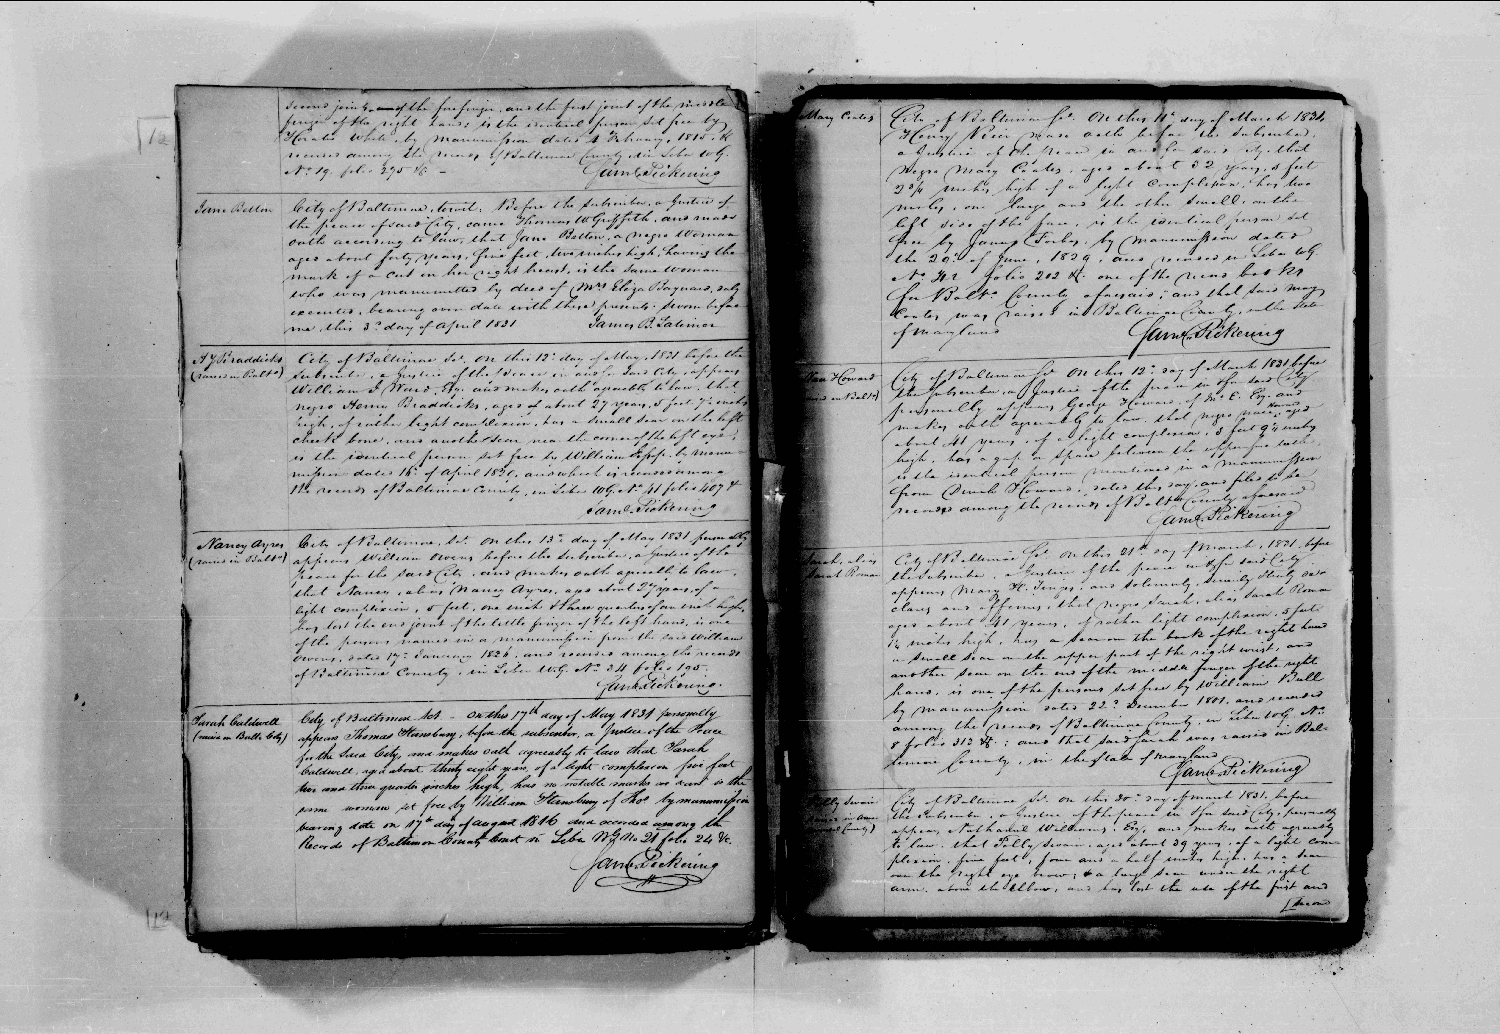 second joint, of the forefinger, and the first joint of the middle
finger of the right hand; is the identical person set free by
Horatio White, by manumission dated February, 1815, &
recorded among the records of Baltimore County, in Liber W.G.
No. 19. folio 295 &c
James Pickering
Jane Betton
City of Baltimore, towit. Before the subscriber, a Justice of
the peace of said City, came Thomas W Griffith, and made
oath according to law, that Jane Betton, a negro Woman
aged about forty years, five feet, two inches high, having the
mark of a cut in her right breast, is the same woman
who was manumitted by deed of Mrs Eliza Baynard, duly
executed, bearing even date with these presents: Sworn before
me, this 3d day of April 1831 James B. Latimer
Hy Braddicks
(raised in Balto)
City of Baltimore Sc. On this 12th day of May, 1831 before the
Subscriber, a Justice of the Peace in and for said City, appears
William J Ward, Esq and makes oath agreeably to law, that
negro Henry Braddicks, aged about 27 years, 5 feet 7 inches
high, of rather light complexion, has a small scar on the left
cheek bone, and another scar near the corner of the left eye,
is the identical person set free by William by manu-
mission dated 16th of April 1830, and which is recorded among
the records of Baltimore County, in Liber W.G. No. 41 folio 407 &
James Pickering
Nancy Ayres
(raised in Balto)
City of Baltimore, Sc. On this 13th day of May 1831 personally
appears William Owens before the subscriber, a Justice of the
peace for the said City, and makes oath agreeably to law,
that Nancy, alias Nancy Ayres, aged about 27 years, of a
light complexion, 5 feet, one inch & three quarters of an inch high,
has lost the end joint of the little finger of the left hand, is one
of the persons named in a manumission from the said William
Owens, dated 17th January 1826, and recorded among the records
of Baltimore County, in Liber W.G. No. 34 folio 195.
James Pickering.
Sarah Caldwell
(raised in Balto City)
City of Baltimore Sct - On this 17th day of May 1831 personally
appears Thomas Stansbury, before the subscriber, a Justice of the Peace
for the said City, and makes oath agreeably to law that Sarah
Caldwell, aged about thirty eight years, of a light complexion five feet
two and three quarter inches high, has no notable marks or scars is the
same woman set free by William Stansbury of Thos by manumission
bearing date on 17th day of August 1816 and recorded among the
Records of Baltimore County Court in Liber W.G No 21 folio 24 &c.
James Pickering
Mary Coates
City of Baltimore Sc. On this 11th day of March 1831
Henry made oath before the subscriber,
a Justice of the peace in and for said city, that
Negro Mary Coates, aged about 32 years, 5 feet
2 3/4 inches high, of a light complexion, has two
moles, one large and the other small, on the
left side of the face, is the identical person set
free by James Forbes, by manumission dated
the 29th of June, 1829, and recorded in Liber W.G.
No. folio 202 &c. one of the record books
for Balto County aforesaid; and that said Mary
Coates was raised in Baltimore County, in the State
of Maryland
James Pickering
Howard
(raised in Balto)
City of Baltimore Sc. On this 12th day of March 1831 before
the subscriber, a Justice of the peace in & for said City
personally appears George Howard, of Esq. and
makes oath agreeably to law, that negro Howard, aged
about 41 years, of a light complexion, 5 feet inches
high, has a gap or space between the upper fore teeth,
is the identical person mentioned in a manumission
from Howard, dated this day, and filed to be
recorded among the records of Balto County aforesaid
James Pickering
Sarah, alias
Sarah Roman
City of Baltimore Sc. On this 21st day of March, 1831, before
the subscriber, a Justice of the peace in & for said City
appears Mary H. and solemnly, sincerely & truly de-
clares and affirms, that negro Sarah, alias Sarah Roman
aged about 41 years, of rather light complexion, 5 feet
inches high, has a scar on the back of the right hand
a small scar on the upper part of the right wrist, and
another scar on the end of the middle finger of the right
hand, is one of the persons set free by William Ball
by manumission dated 22d December 1801, and recorded
among the records of Baltimore County, in Liber W.G. No.
8 folio 313 &c.; and that said Sarah was raised in Bal-
timore County, in the State of Maryland
James Pickering
City of Baltimore Sc. On this 30th day of March 1831, before
the subscriber, a Justice of the peace in & for said City, personally
appears Nathaniel Williams, Esq. and makes oath agreeably
to law, that aged about 39 years, of a light com-
plexion, five feet, four and a half inches high, has a scar
over the right eye brow; & a large scar under the right
arm, above the elbow, and has lost the use of the first and
[second